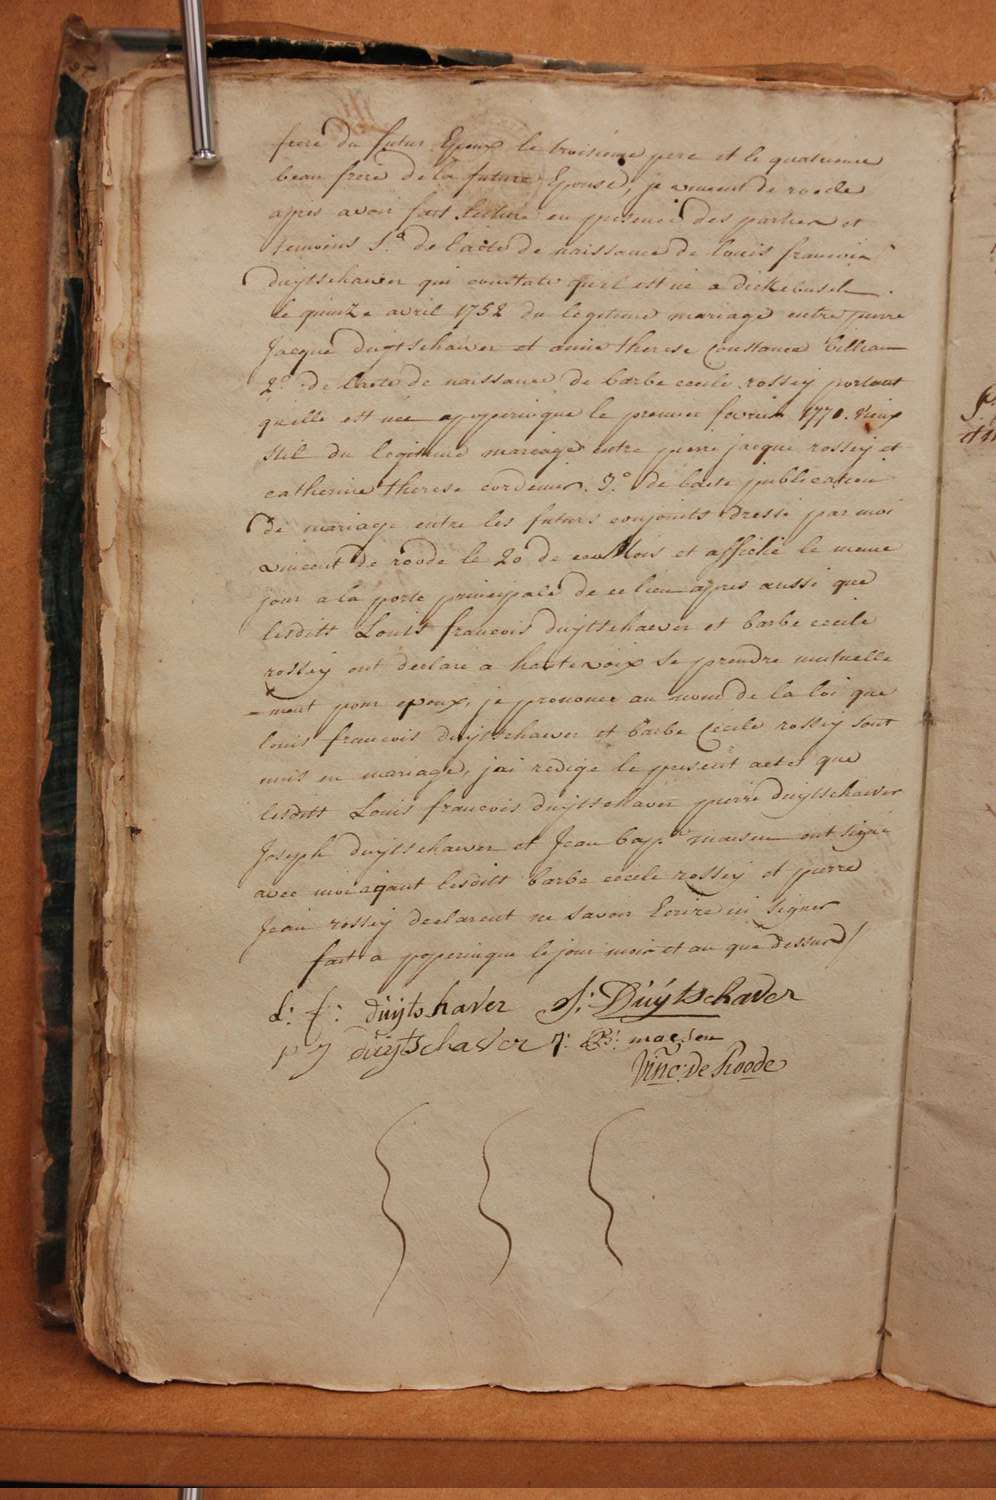 frere du futur Epoux le troisieme pere et le quatrieme
beau frere de la future Epouse, je vincent de roode
apres avoir fait lecture en presence des parties et
temoins 1.º de lacte de naissance de louis francois
duytschaever qui constate quil est né a dickebusch
le quinze avril 1752 du legitime mariage entre pierre
Jacque duytschaever et anne therese Constance
2º de lacte de naissance de barbe cecile rossey portant
quelle est née apoperinque le premier fevrier 1770. vieux
stil du legitime mariage entre pierre jacque rossey et
catherine therese cordenier. 3.º de lacte publication
de mariage entre les futurs conjoints dressé par moi
vincent de roode le 20 de ce mois et affiché le meme
jour a la porte principale de ce lieu apres aussi que
lesdits Louis francois duytschaever et barbe cecile
rossey ont declare a hautevoix se prendre mutuelle
-ment pour epoux, je prononce au nom de la loi que
louis francois duytschaever et barbe Cecile rossey sont
unis en mariage, jai redigé le present acte que
lesdits Louis francois duytschaver pierre duytschaever
Joseph duytschaever et Jean bap.te maseu ont signé
avec moi ayant lesdits barbe cecile rossey et pierre
Jean rossey declarent ne savoir Ecrire ni signer
fait a poperinque le jour mois et an que dessus /
L: f: duytshaver J: Duÿtschaver
p j duÿtschaVer J: B: 
Vinc: De Roode